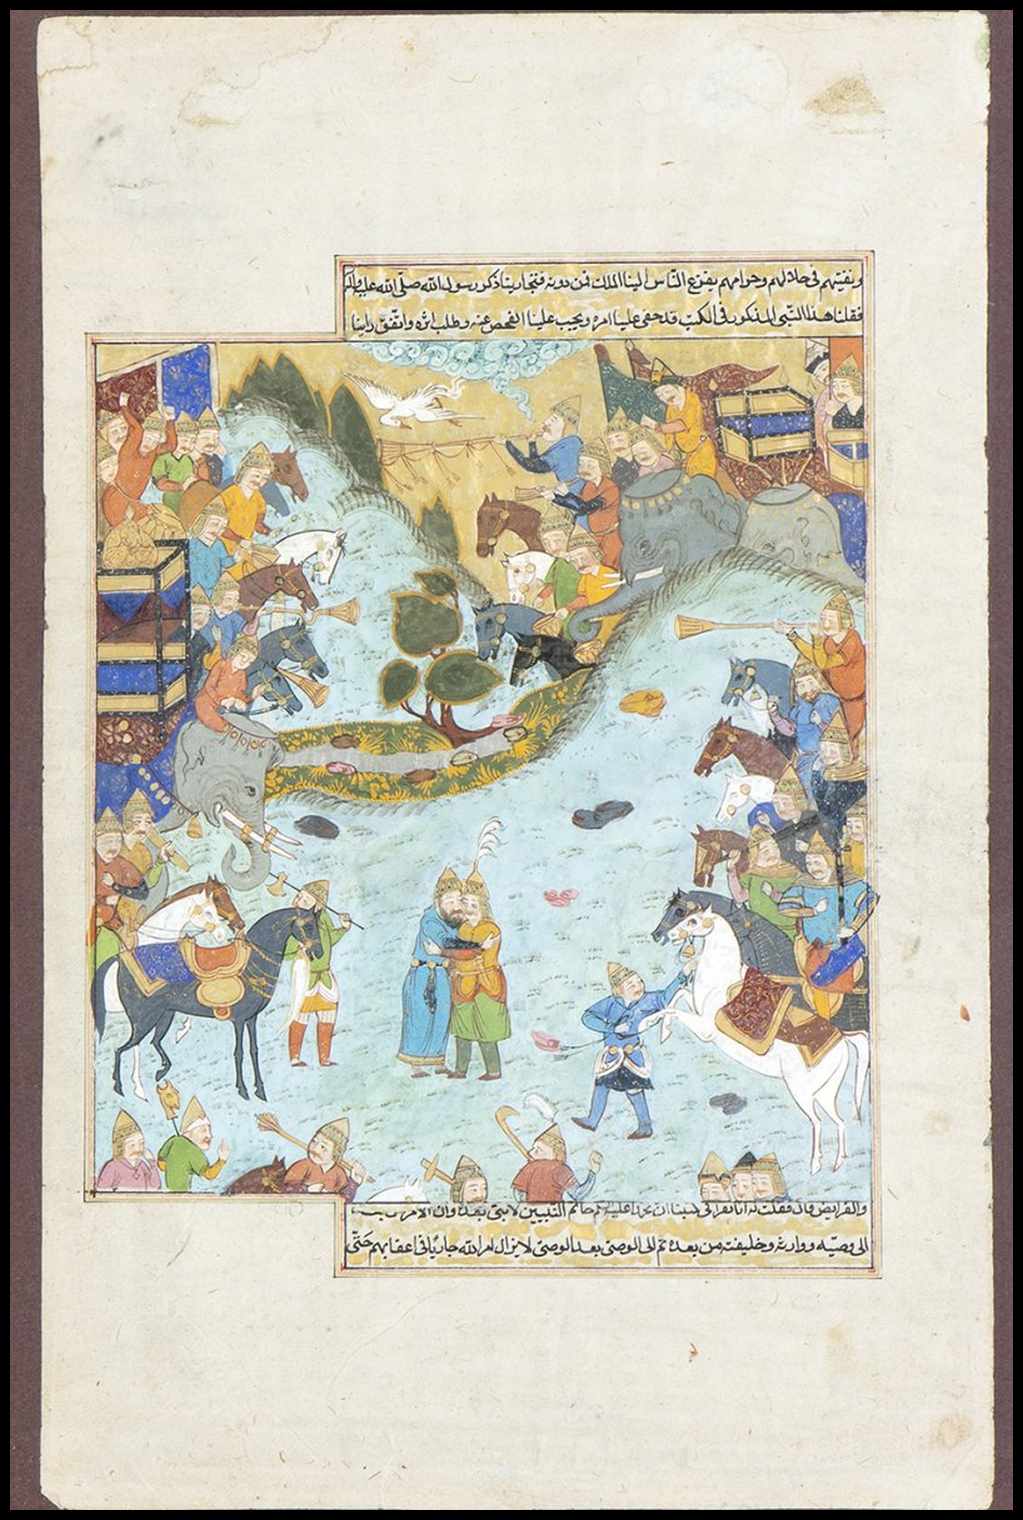 ونفتيهم فى حلالهم وحرامهم يفزع الناس الينا الملك فمن دونه فتجارينا ذكر رسول الله صلّى الله عليه وآله
فقلنا هذا النّبى المذكور فى الكتب قد خفى علينا امره ويجب علينا الفحص عنه وطلب اثره واتّفق راينا
والفرايض وقال فقلت له انا نقرا فى كتبنا ان محمدا خاتم النبيين لا نبى بعده وان الامر من بعده
الى وصيّه ووارثه وخليفته من بعده ثم الى الوصى بعد الوصى لا يزال امر الله جاريًا فى اعقابهم حتّى